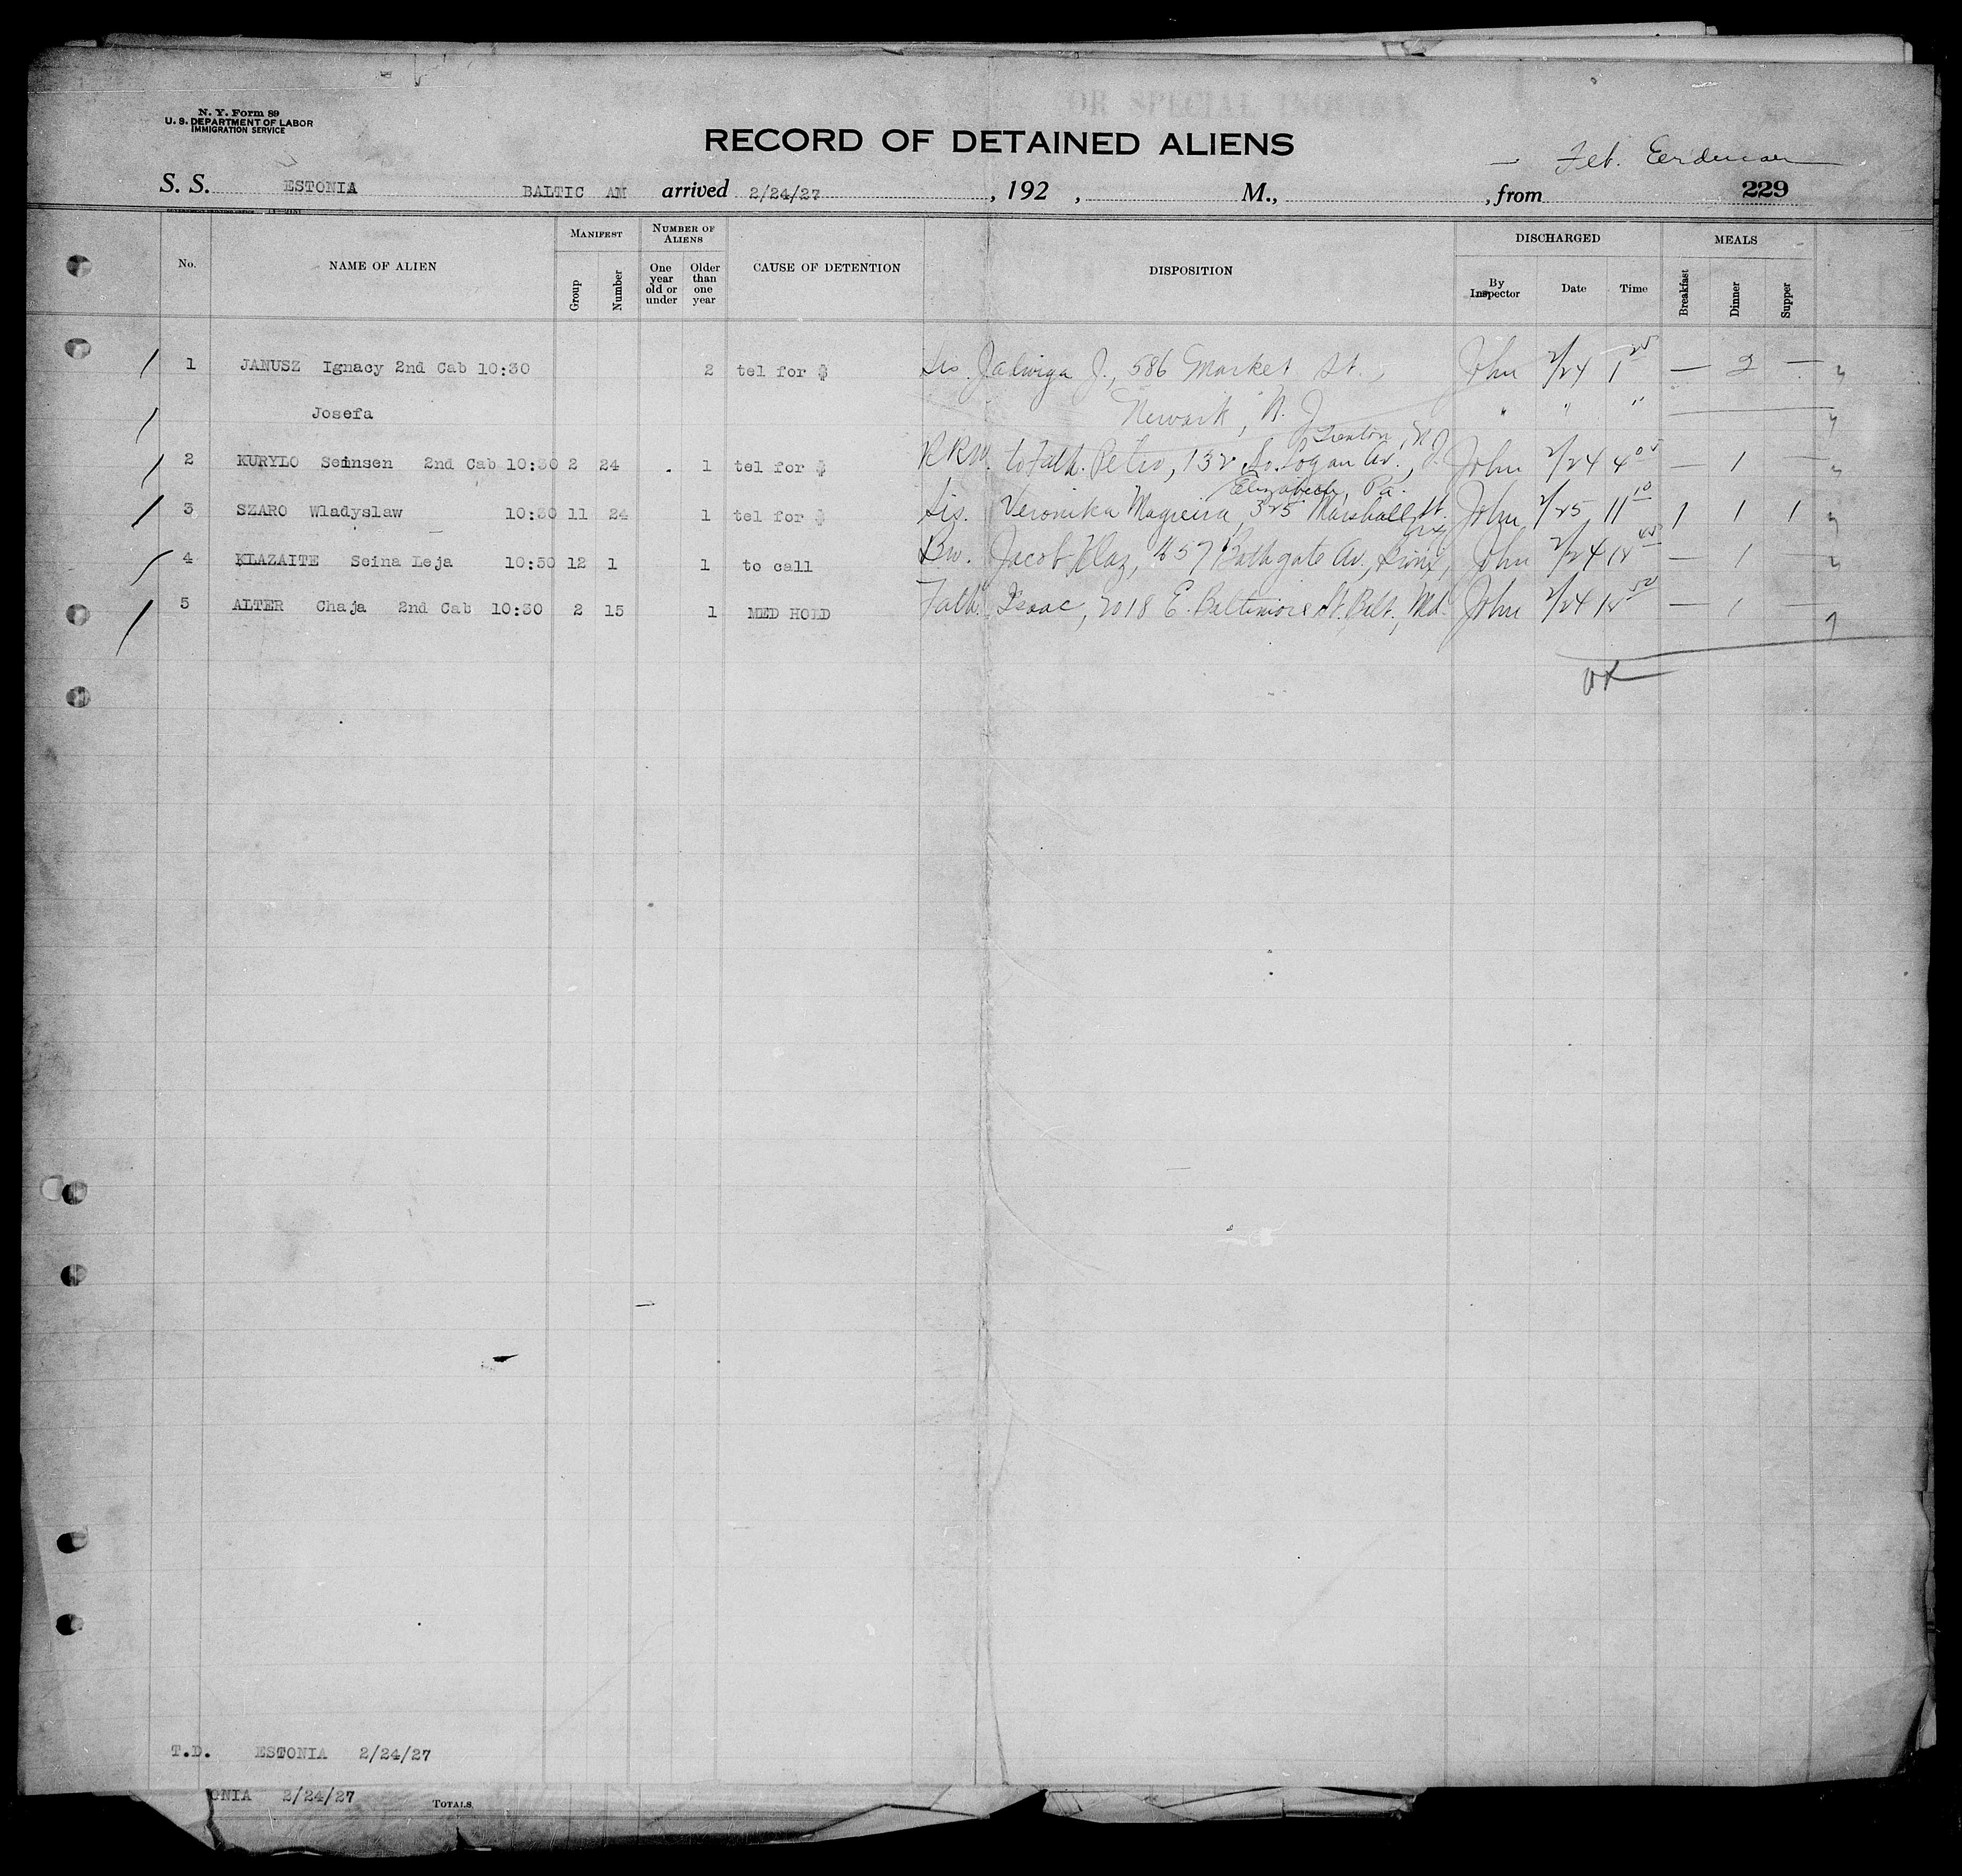 OR SPECIAL INQUIRY.
N. Y. Form 89
U. S. DEPARTMENT OF LABOR
IMMIGRATION SERVICE
RECORD OF DETAINED ALIENS
Feb.
S. S. ESTONIA BALTIC AM arrived 2/24/27, 192 , M., , from 229
No. NAME OF ALIEN MANIFEST Group Number NUMBER OF ALIENS One year old or under Older than one year CAUSE OF DETENTION DISPOSITION DISCHARGED By Inspector Date Time MEALS Breakfast Dinner Supper
1 JANUSZ Ignacy 2nd Cab 10:30 2 tel for $ Sis. Jadwiga J., 586 Market St., John 2/24 1 25 — 2 —
Josefa Newark, N. J. " " "
Trenton, N. J.
2 KURYLO Semnsen 2nd Cab 10:30 2 24 1 tel for $ RRW. to Fath. Petro, 132 So. Logan Av., John 2/24 4 05 — 1 —
Elizabeth, Pa.
3 SZARO Wladyslaw 10:30 11 24 1 tel for $ Sis. Veronika Magreira, 325 Marshall St. John 2/25 11 10 1 1 1
4 KLAZAITE Seina Leja 10:50 12 1 1 to call Jacob Klaz, Bathgate Av., John 2/24 — 1 —
5 ALTER Chaja 2nd Cab 10:30 2 15 1 MED HOLD Fath. Isaac, 2018 E. Baltimore St. Balt., Md. John 2/24 — 1 —
OK
T.D. ESTONIA 2/24/27
ONIA 2/24/27 TOTALS